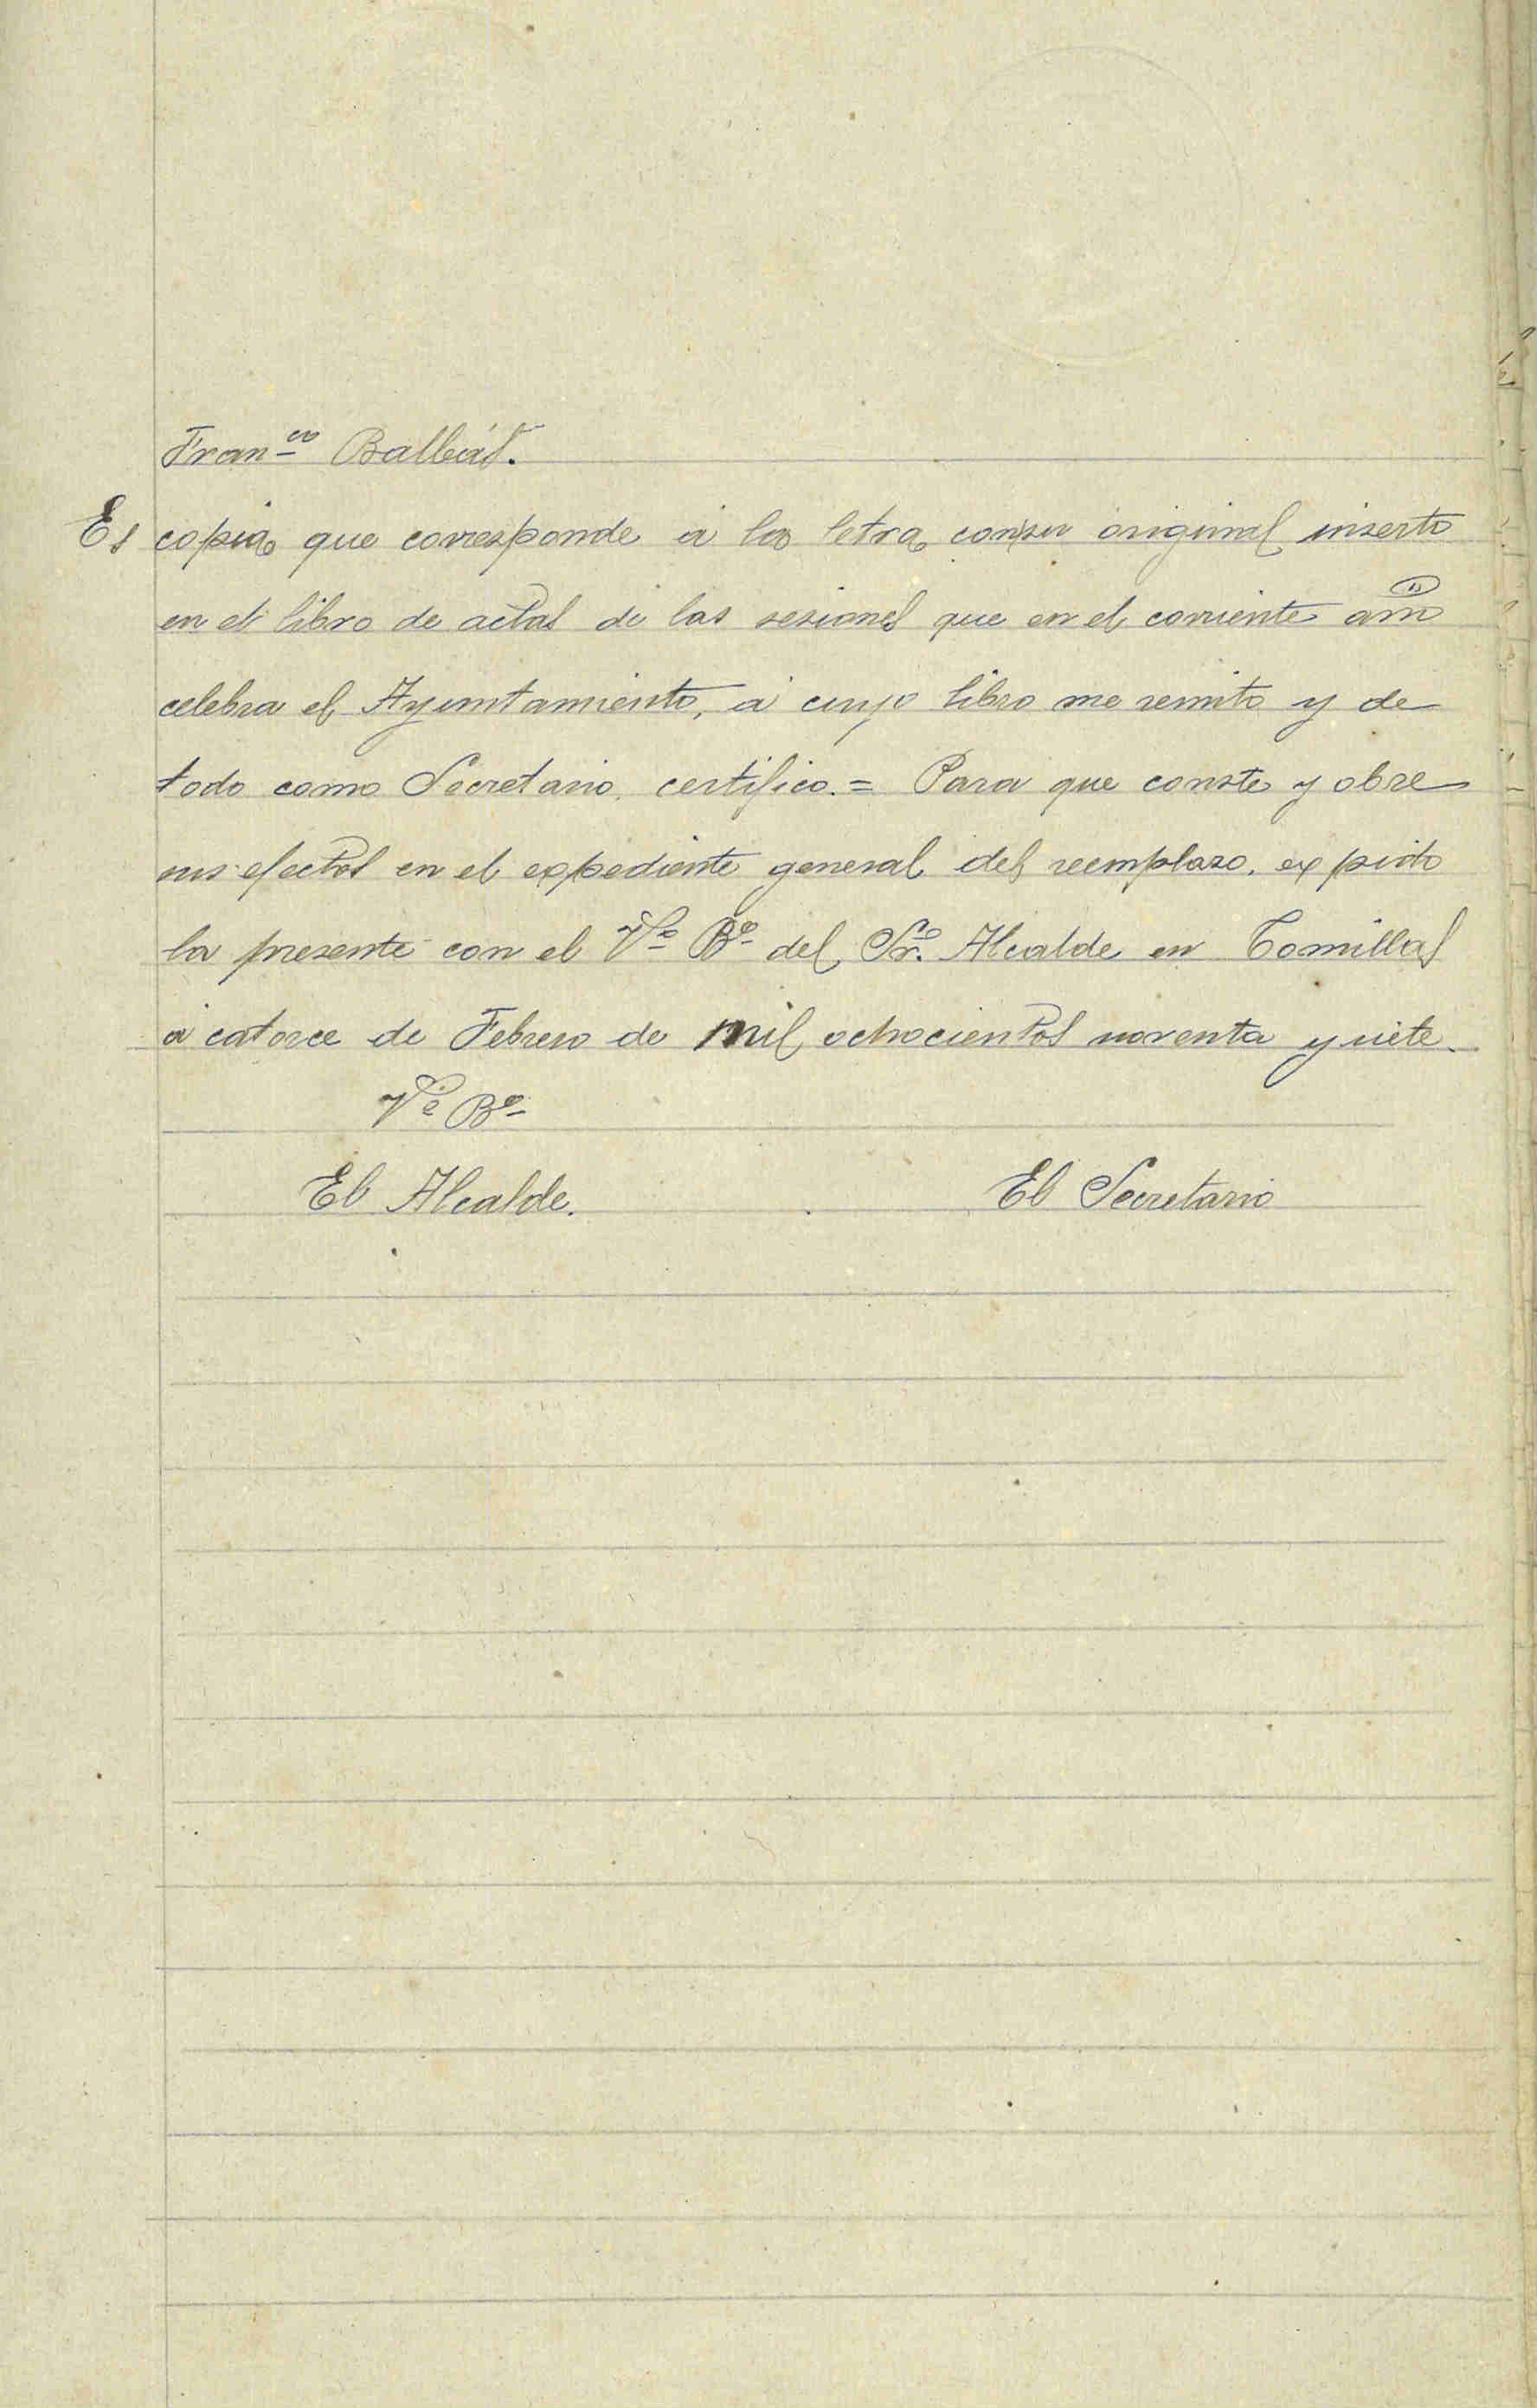 Fran.co Balbás.
Es copia que corresponde á la letra con su original inserto
en el libro de actas de las sesiones que en el corriente año
celebra el Ayuntamiento, á cuyo libro me remito y de
todo como Secretario certifico.= Para que conste y obre
sus efectos en el expediente general del reemplazo, expido
la presente con el V.º B.º del Sr. Alcalde en Comillas
á catorce de Febrero de mil ochocientos noventa y siete.
V.º B.º
El Alcalde. El Secretario